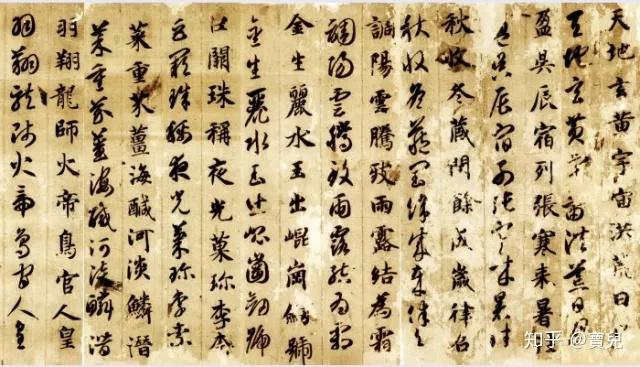 天地玄黄宇宙洪荒日月
天地玄黄宇宙洪荒日月
盈昃辰宿列張寒来暑
盈昃辰宿列張寒来暑往
秋收冬蔵閏餘成歲律呂
秋收冬蔵閏餘成歲律呂
調陽雲騰致雨露結為霜
調陽雲騰致雨露結為霜
金生麗水玉出崐崗劒號
金生麗水玉出崐崗劒號
巨闕珠稱夜光菓珎李柰
巨闕珠稱夜光菓珎李柰
菜重芥薑海醎河淡鱗潛
菜重芥薑海醎河淡鱗潛
羽翔龍師火帝鳥官人皇
羽翔龍師火帝鳥官人皇
知乎 @寶兒